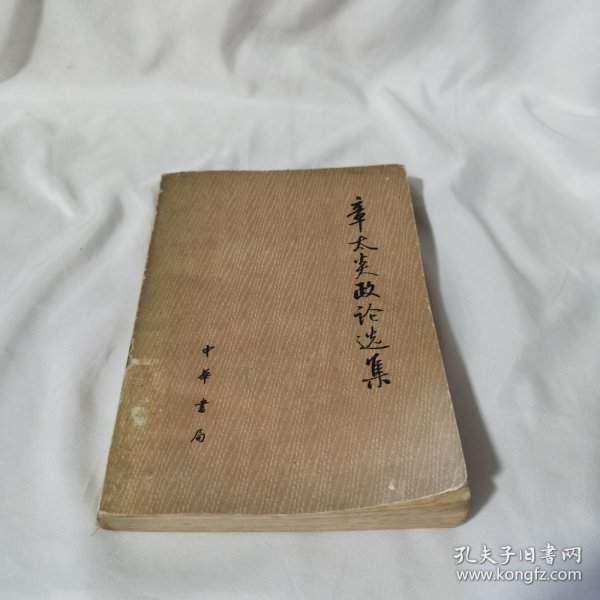 章太炎政论选集
中華書局
孔夫子旧書网
www.kongfz.com